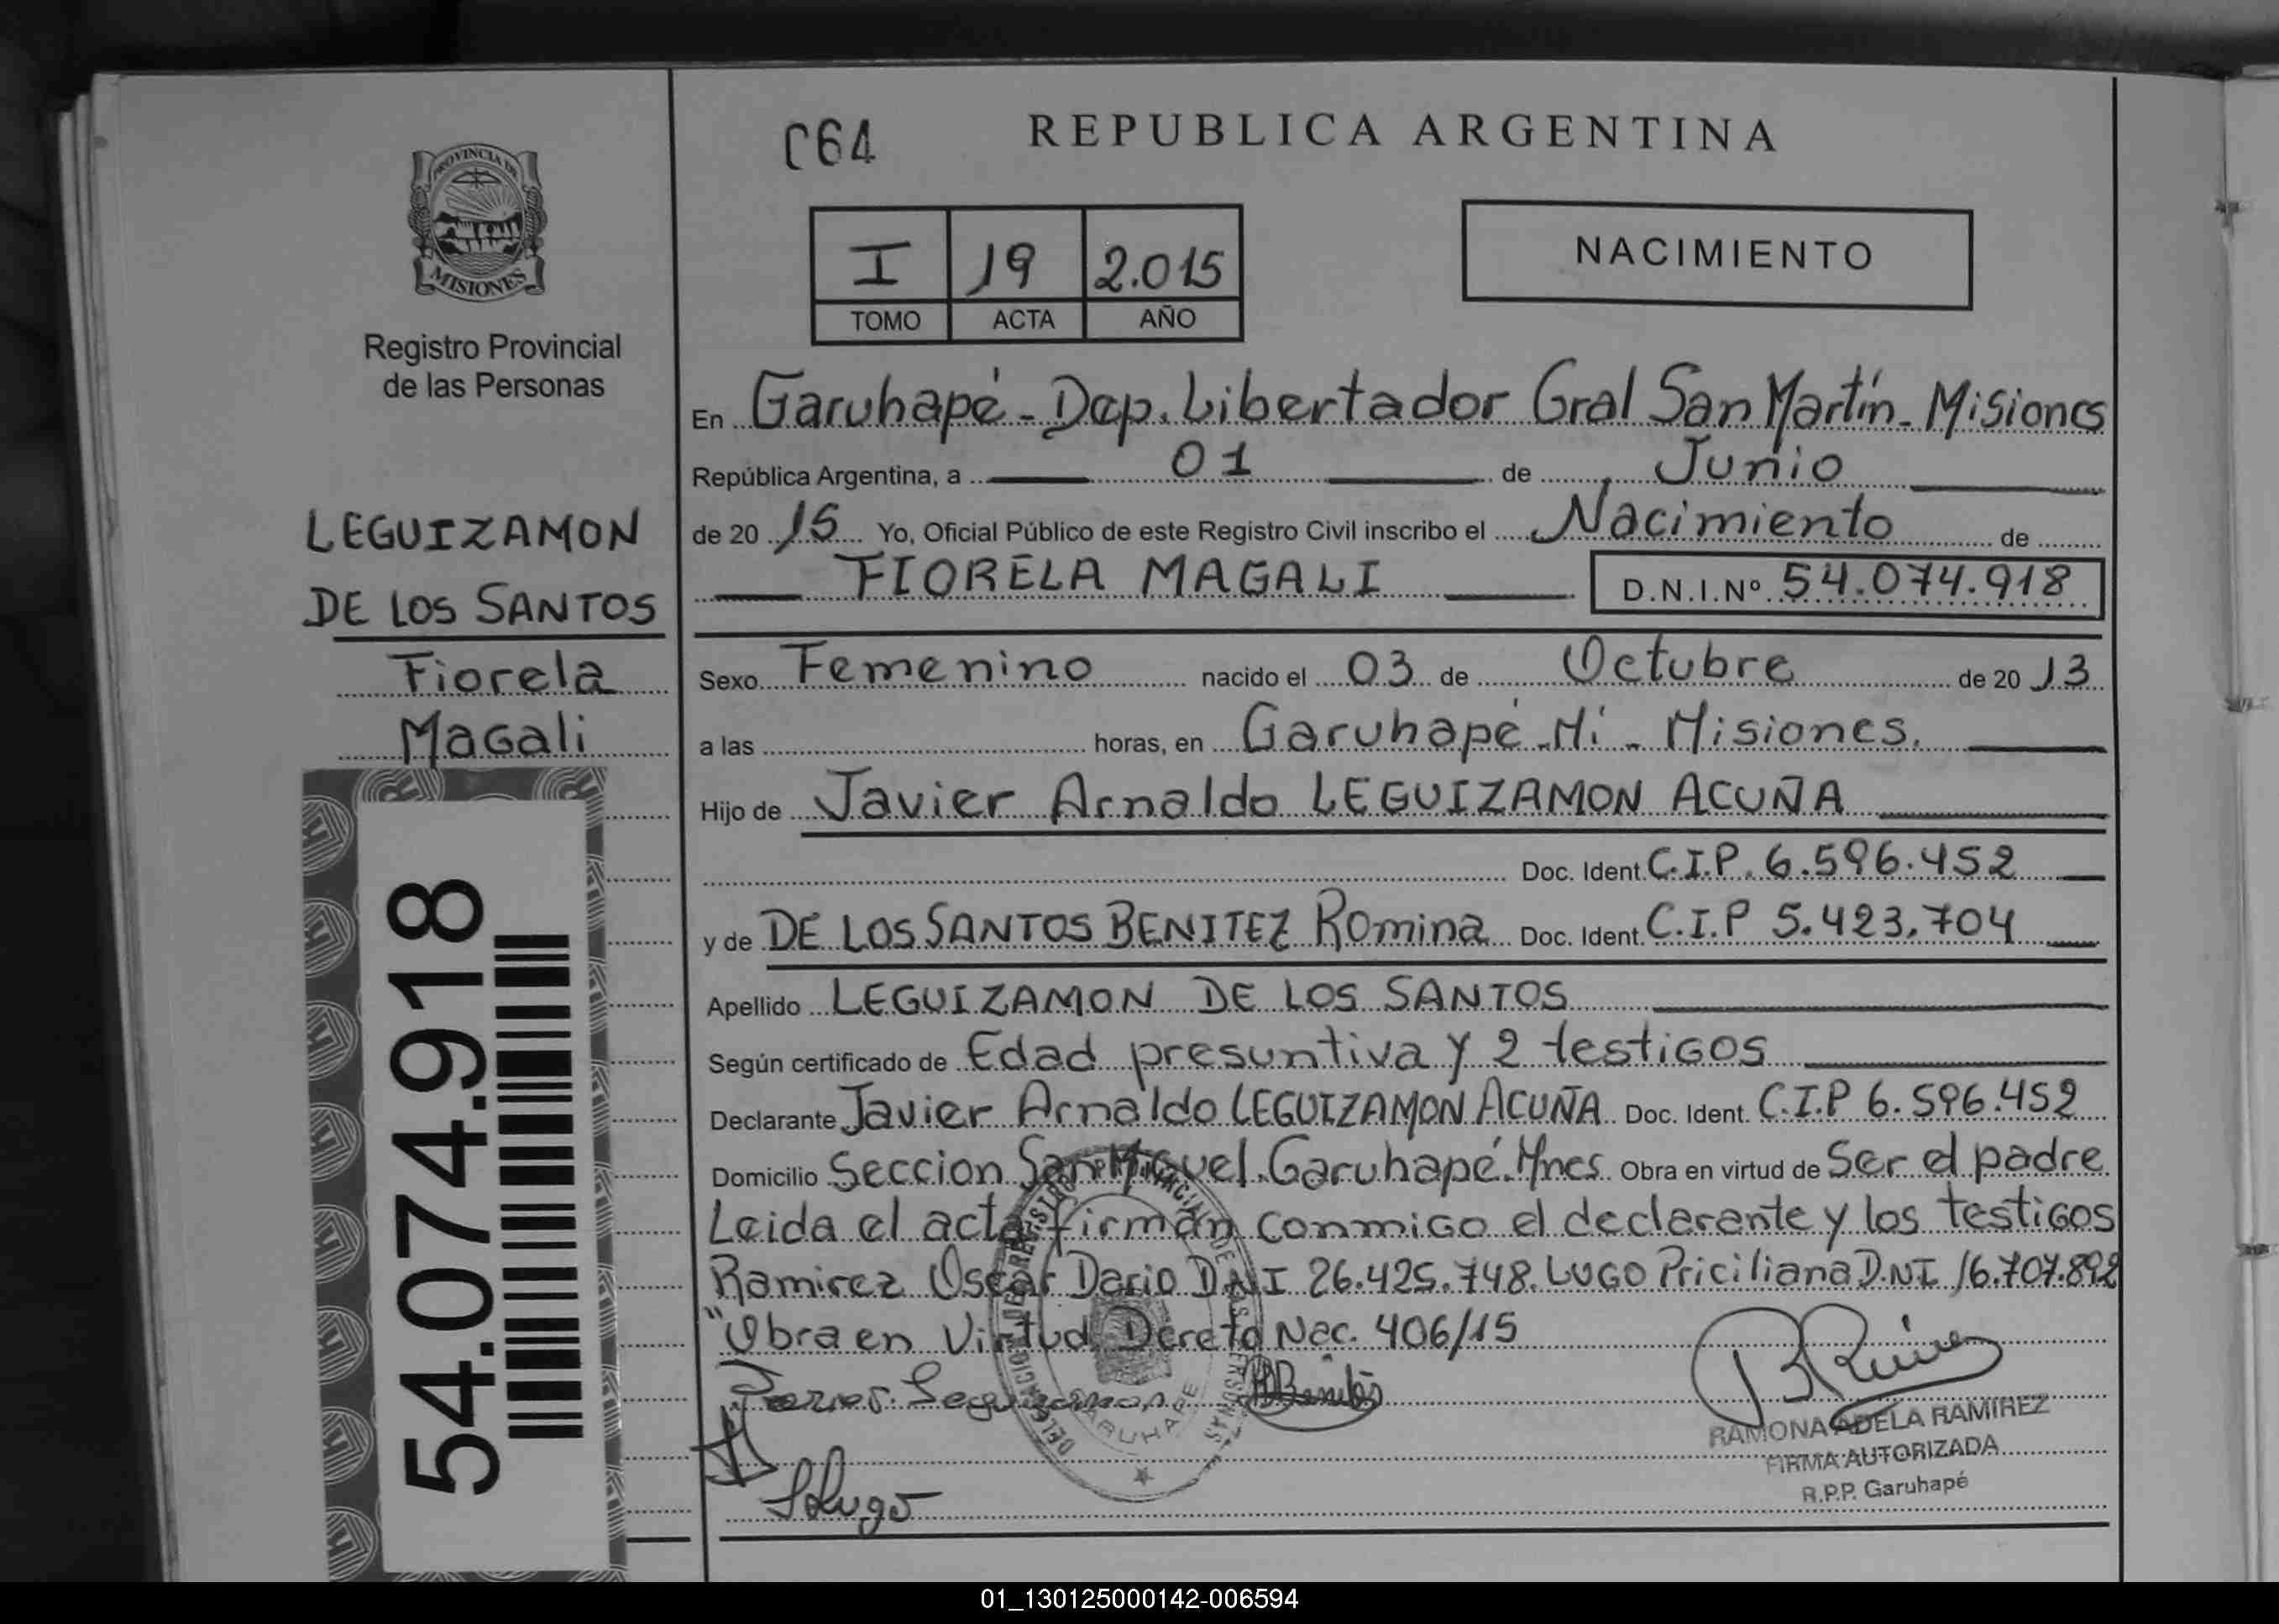 C64
REPUBLICA ARGENTINA
PROVINCIA DE
MISIONES
Registro Provincial
de las Personas
I 19 2.015
TOMO ACTA AÑO
NACIMIENTO
LEGUIZAMON
DE LOS SANTOS
Fiorela
Magali
54.074.918
En Garuhapé - Dep. Libertador Gral San Martín - Misiones
República Argentina, a 01 de Junio
de 20 15 Yo, Oficial Público de este Registro Civil inscribo el Nacimiento de
FIORELA MAGALI D.N.I.Nº 54.074.918
Sexo Femenino nacido el 03 de Octubre de 20 13
a las horas, en Garuhapé - Mí - Misiones.
Hijo de Javier Arnaldo LEGUIZAMON ACUÑA
Doc. Ident. C.I.P. 6.596.452
y de DE LOS SANTOS BENITEZ Romina Doc. Ident. C.I.P 5.423.704
Apellido LEGUIZAMON DE LOS SANTOS
Según certificado de Edad presuntiva y 2 testigos
Declarante Javier Arnaldo LEGUIZAMON ACUÑA Doc. Ident. C.I.P 6.596.452
Domicilio Seccion San Miguel. Garuhapé. Mnes. Obra en virtud de Ser el padre
Leida el acta firman conmigo el declarante y los testigos
Ramirez Oscar Dario D.N.I 26.425.748. LUGO Priciliana D.NI 16.707.892
"Obra en Virtud Decreto Nac. 406/15
RAMONA ADELA RAMIREZ
FIRMA AUTORIZADA
R.P.P. Garuhapé
Lugo
01_130125000142-006594